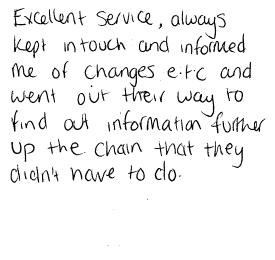 Excellent service, always
kept in touch and informed
me of changes e.t.c and
went out their way to
find out information further
up the chain that they
didn't have to do.